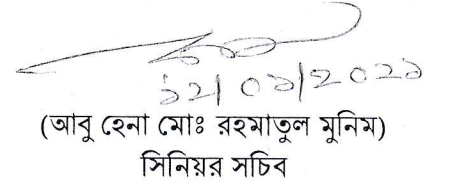 ১২/০১/২০২১
(আবু হেনা মোঃ রহমাতুল মুনিম)
সিনিয়র সচিব